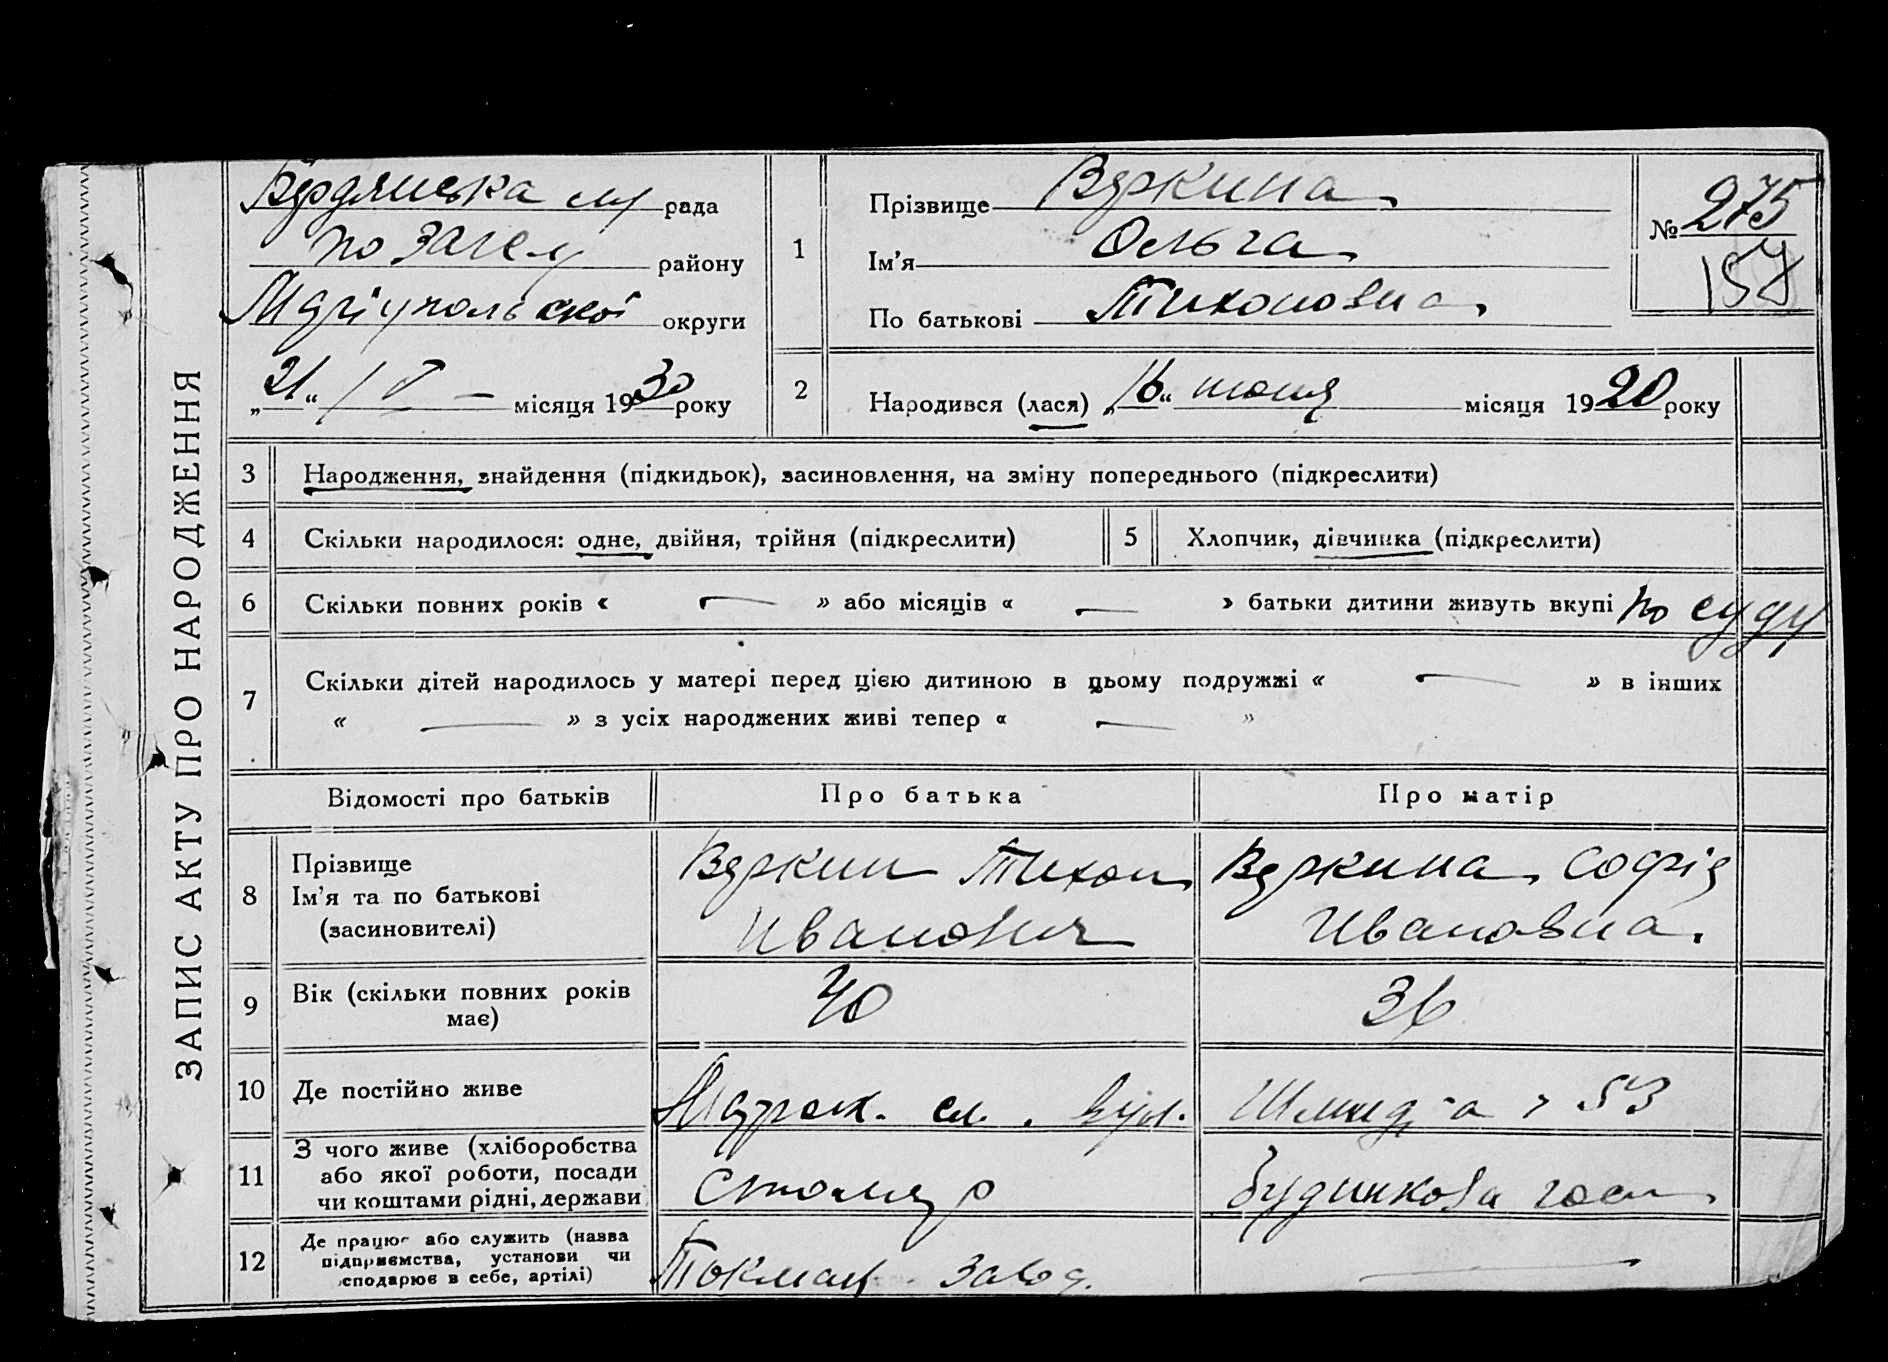 ЗАПИС АКТУ ПРО НАРОДЖЕННЯ
Бердянська м/ рада
по загсу району
Маріупольської округи
„21“ / V — місяця 1930 року
1
Прізвище Веркина
Ім'я Ольга
По батькові Тихоновна
№ 275
158
2
Народився (лася) „16“ июня місяця 1920 року
3 Народження, знайдення (підкидьок), засиновлення, на зміну попереднього (підкреслити)
4 Скільки народилося: одне, двійня, трійня (підкреслити)
5 Хлопчик, дівчинка (підкреслити)
6 Скільки повних років « — » або місяців « — » батьки дитини живуть вкупі по суду
7 Скільки дітей народилось у матері перед цією дитиною в цьому подружжі « — » в інших
« — » з усіх народжених живі тепер « — »
Відомості про батьків Про батька Про матір
8 Прізвище
Ім'я та по батькові
(засиновителі)
Веркин Тихон
Иванович
Веркина Софія
Ивановна.
9 Вік (скільки повних років
має)
40
36
10 Де постійно живе
сл. вул. Шмидта 53
11 З чого живе (хліборобства
або якої роботи, посади
чи коштами рідні, держави
Столяр
Будинкова госп.
12 Де працює або служить (назва
підприємства, установи чи
сподарює в себе, артілі)
Токмац. завод.
—